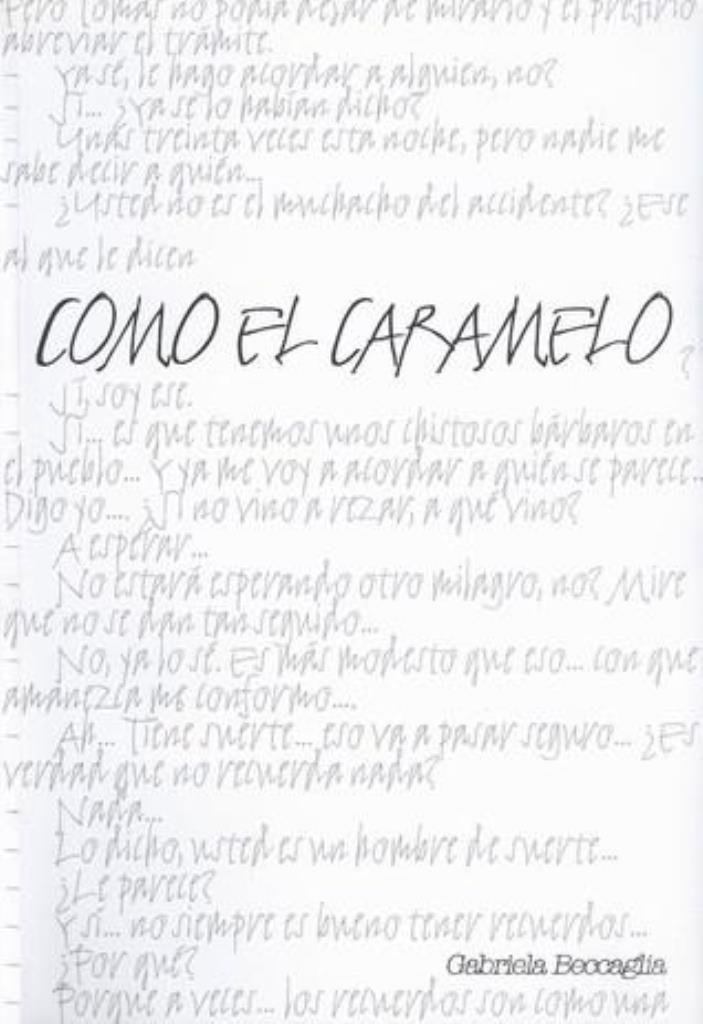 Pero Tomás no podía dejar de mirarlo y él prefirió
abreviar el trámite.
– Ya sé, le hago acordar a alguien, no?
– Sí... ¿Ya se lo habían dicho?
– Unas treinta veces esta noche, pero nadie me
sabe decir a quién...
– ¿Usted no es el muchacho del accidente? ¿Ese
al que le dicen
COMO EL CARAMELO?
– Sí, soy ese.
– Sí... es que tenemos unos chistosos bárbaros en
el pueblo... Y ya me voy a acordar a quién se parece...
Digo yo.... ¿Si no vino a rezar, a qué vino?
– A esperar...
– No estará esperando otro milagro, no? Mire
que no se dan tan seguido...
– No, ya lo sé. Es más modesto que eso... con que
amanezca me conformo....
– Ah... Tiene suerte... eso va a pasar seguro... ¿Es
verdad que no recuerda nada?
– Nada...
– Lo dicho, usted es un hombre de suerte...
– ¿Le parece?
– Y sí... no siempre es bueno tener recuerdos...
– ¿Por qué?
Gabriela Beccaglia
– Porque a veces... los recuerdos son como una